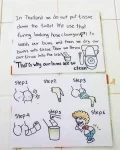 In Thailand we do not put tissue
down the toilet. We use that
funny looking hose (bumgun) to
wash our bums and then we dry our
bums with tissue. Then we throw
our tissue into the
That's why our bums are so
clean
Step 1
Step 2
Step 3
Step 4
Step 5